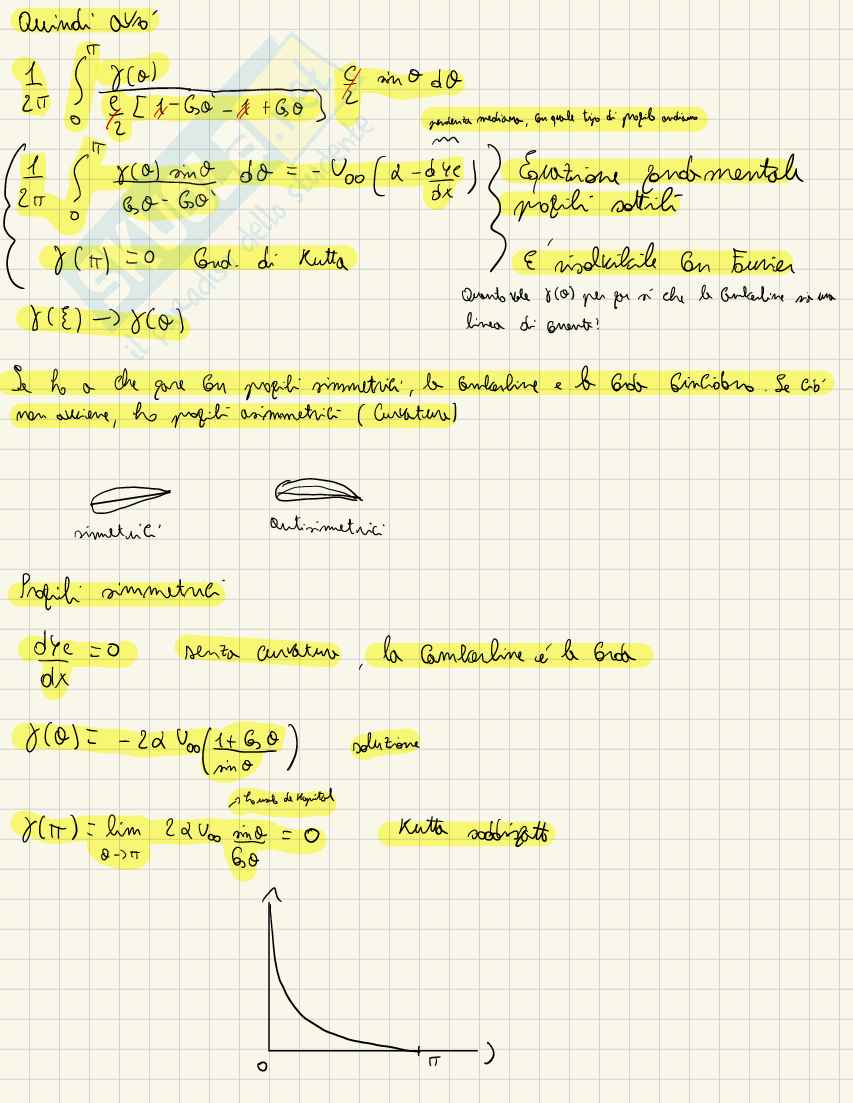 Quindi avrò
1/2π ∫₀^π γ(θ) / (c/2 [1 - cosθ' - 1 + cosθ]) c/2 sin θ dθ
pendenza mediana, con quale tipo di profilo andiamo
1/2π ∫₀^π γ(θ) sinθ / (cosθ - cosθ') dθ = - U∞ (α - dyc/dx) Equazione fondamentale
profili sottili
γ(π) = 0 Cond. di Kutta
È risolvibile con Fourier
Quanto vale γ(θ) per far sì che la camberline sia una
γ(ξ) → γ(θ)
linea di corrente?
Se ho a che fare con profili simmetrici, la camberline e la corda coincidono. Se ciò
non avviene, ho profili asimmetrici (curvatura)
simmetrici
antisimmetrici
Profili simmetrici
dyc/dx = 0 senza curvatura, la camberline è la corda
γ(θ) = - 2α U∞ (1 + cos θ / sin θ) soluzione
→ ho usato de Hopital
γ(π) = lim θ→π 2αU∞ sinθ/cosθ = 0 Kutta soddisfatto
0 π